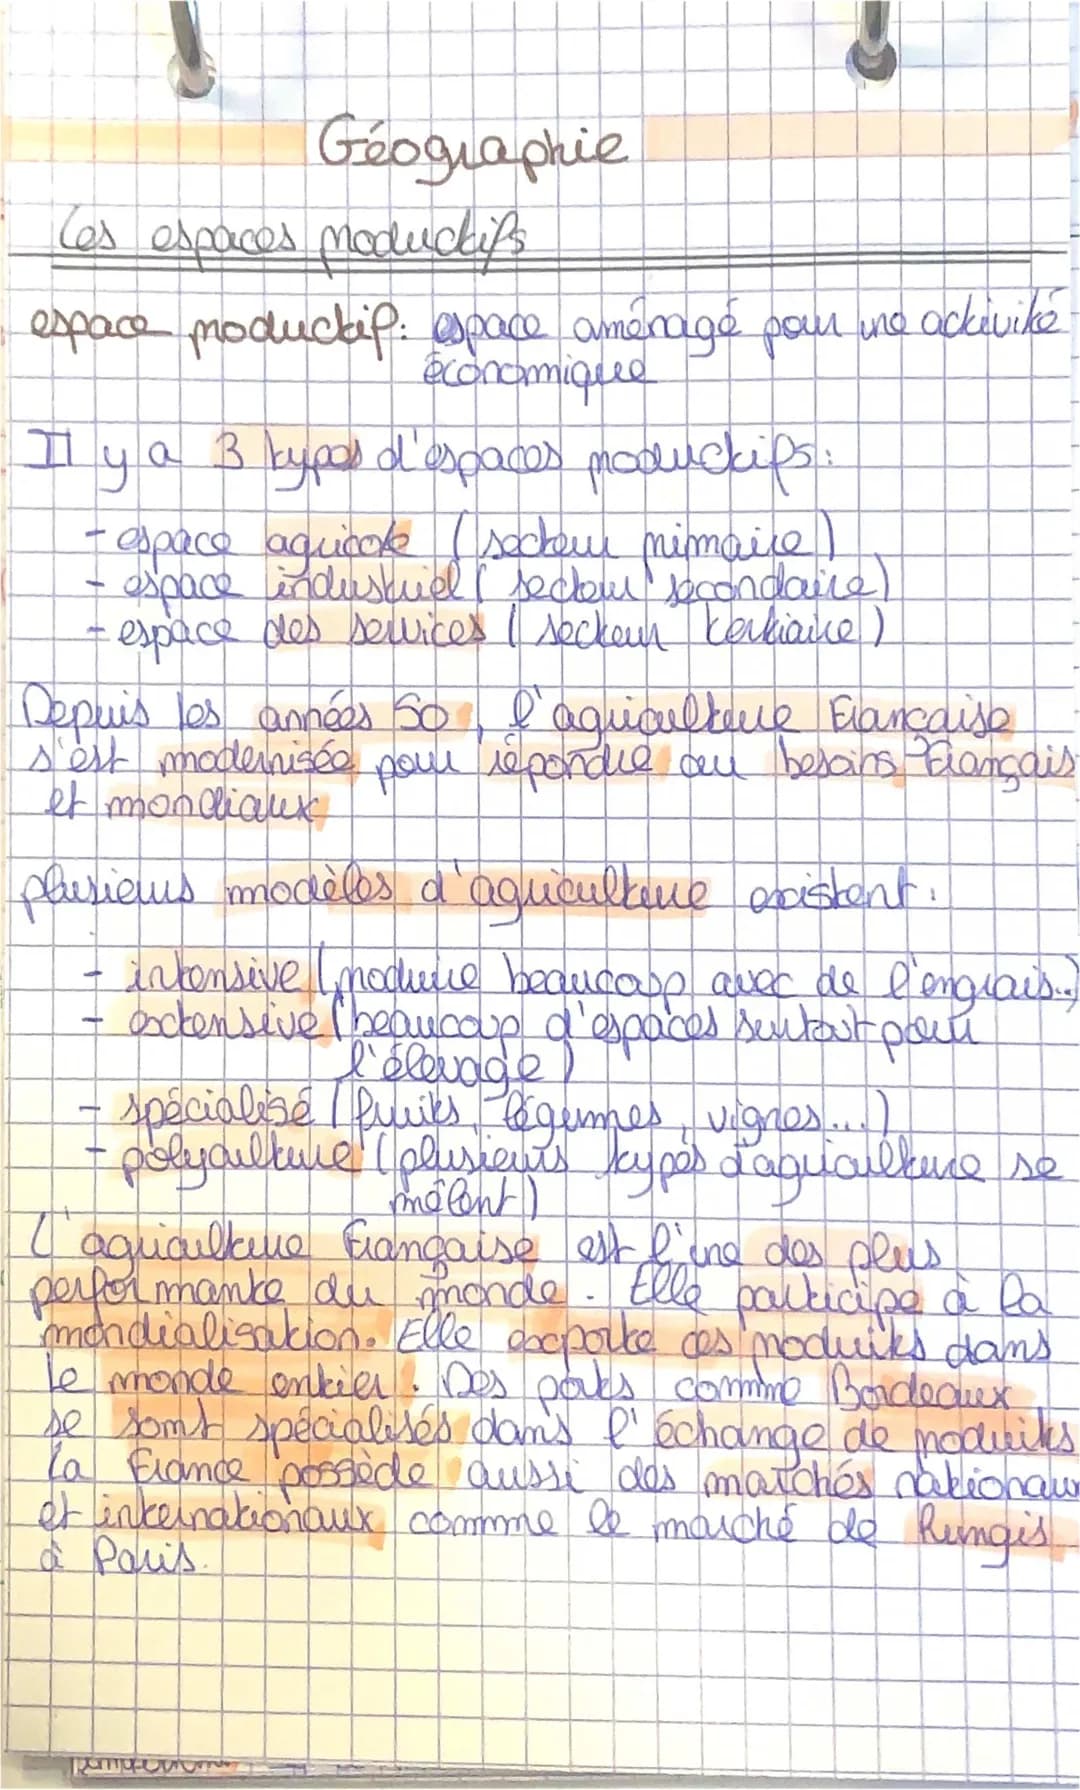 Géographie
Les espaces productifs
espace productif: espace aménagé pour une activité
économique
Il y a 3 types d'espaces productifs:
- espace agricole (secteur primaire)
- espace industriel (secteur secondaire)
- espace des services (secteur tertiaire)
Depuis les années 50, l'agriculture Française
s'est modernisée pour répondre au besoins Français
et mondiaux
plusieurs modèles d'agriculture existent:
- intensive (produire beaucoup avec de l'engrais...)
- extensive (beaucoup d'espaces surtout pour
l'élevage)
- spécialisé (fruits, légumes, vignes...)
- polyculture (plusieurs types d'agriculture se
mêlent)
L'agriculture française est l'une des plus
performante du monde. Elle participe à la
mondialisation. Elle exporte ces produits dans
le monde entier. Des ports comme Bordeaux
se sont spécialisés dans l'échange de produits
La France possède aussi des marchés nationaux
et internationaux comme le marché de Rungis
à Paris.